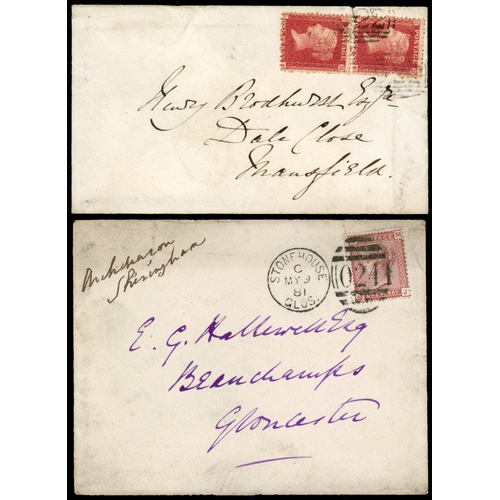 Henry Brodhurst Esqre
Dale Close
Mansfield.
Archdeacon
Sheringham
STONEHOUSE
C
MY 9
81
GLOS.
024
E. G. Hallewell Esq
Beauchamps
Gloucester